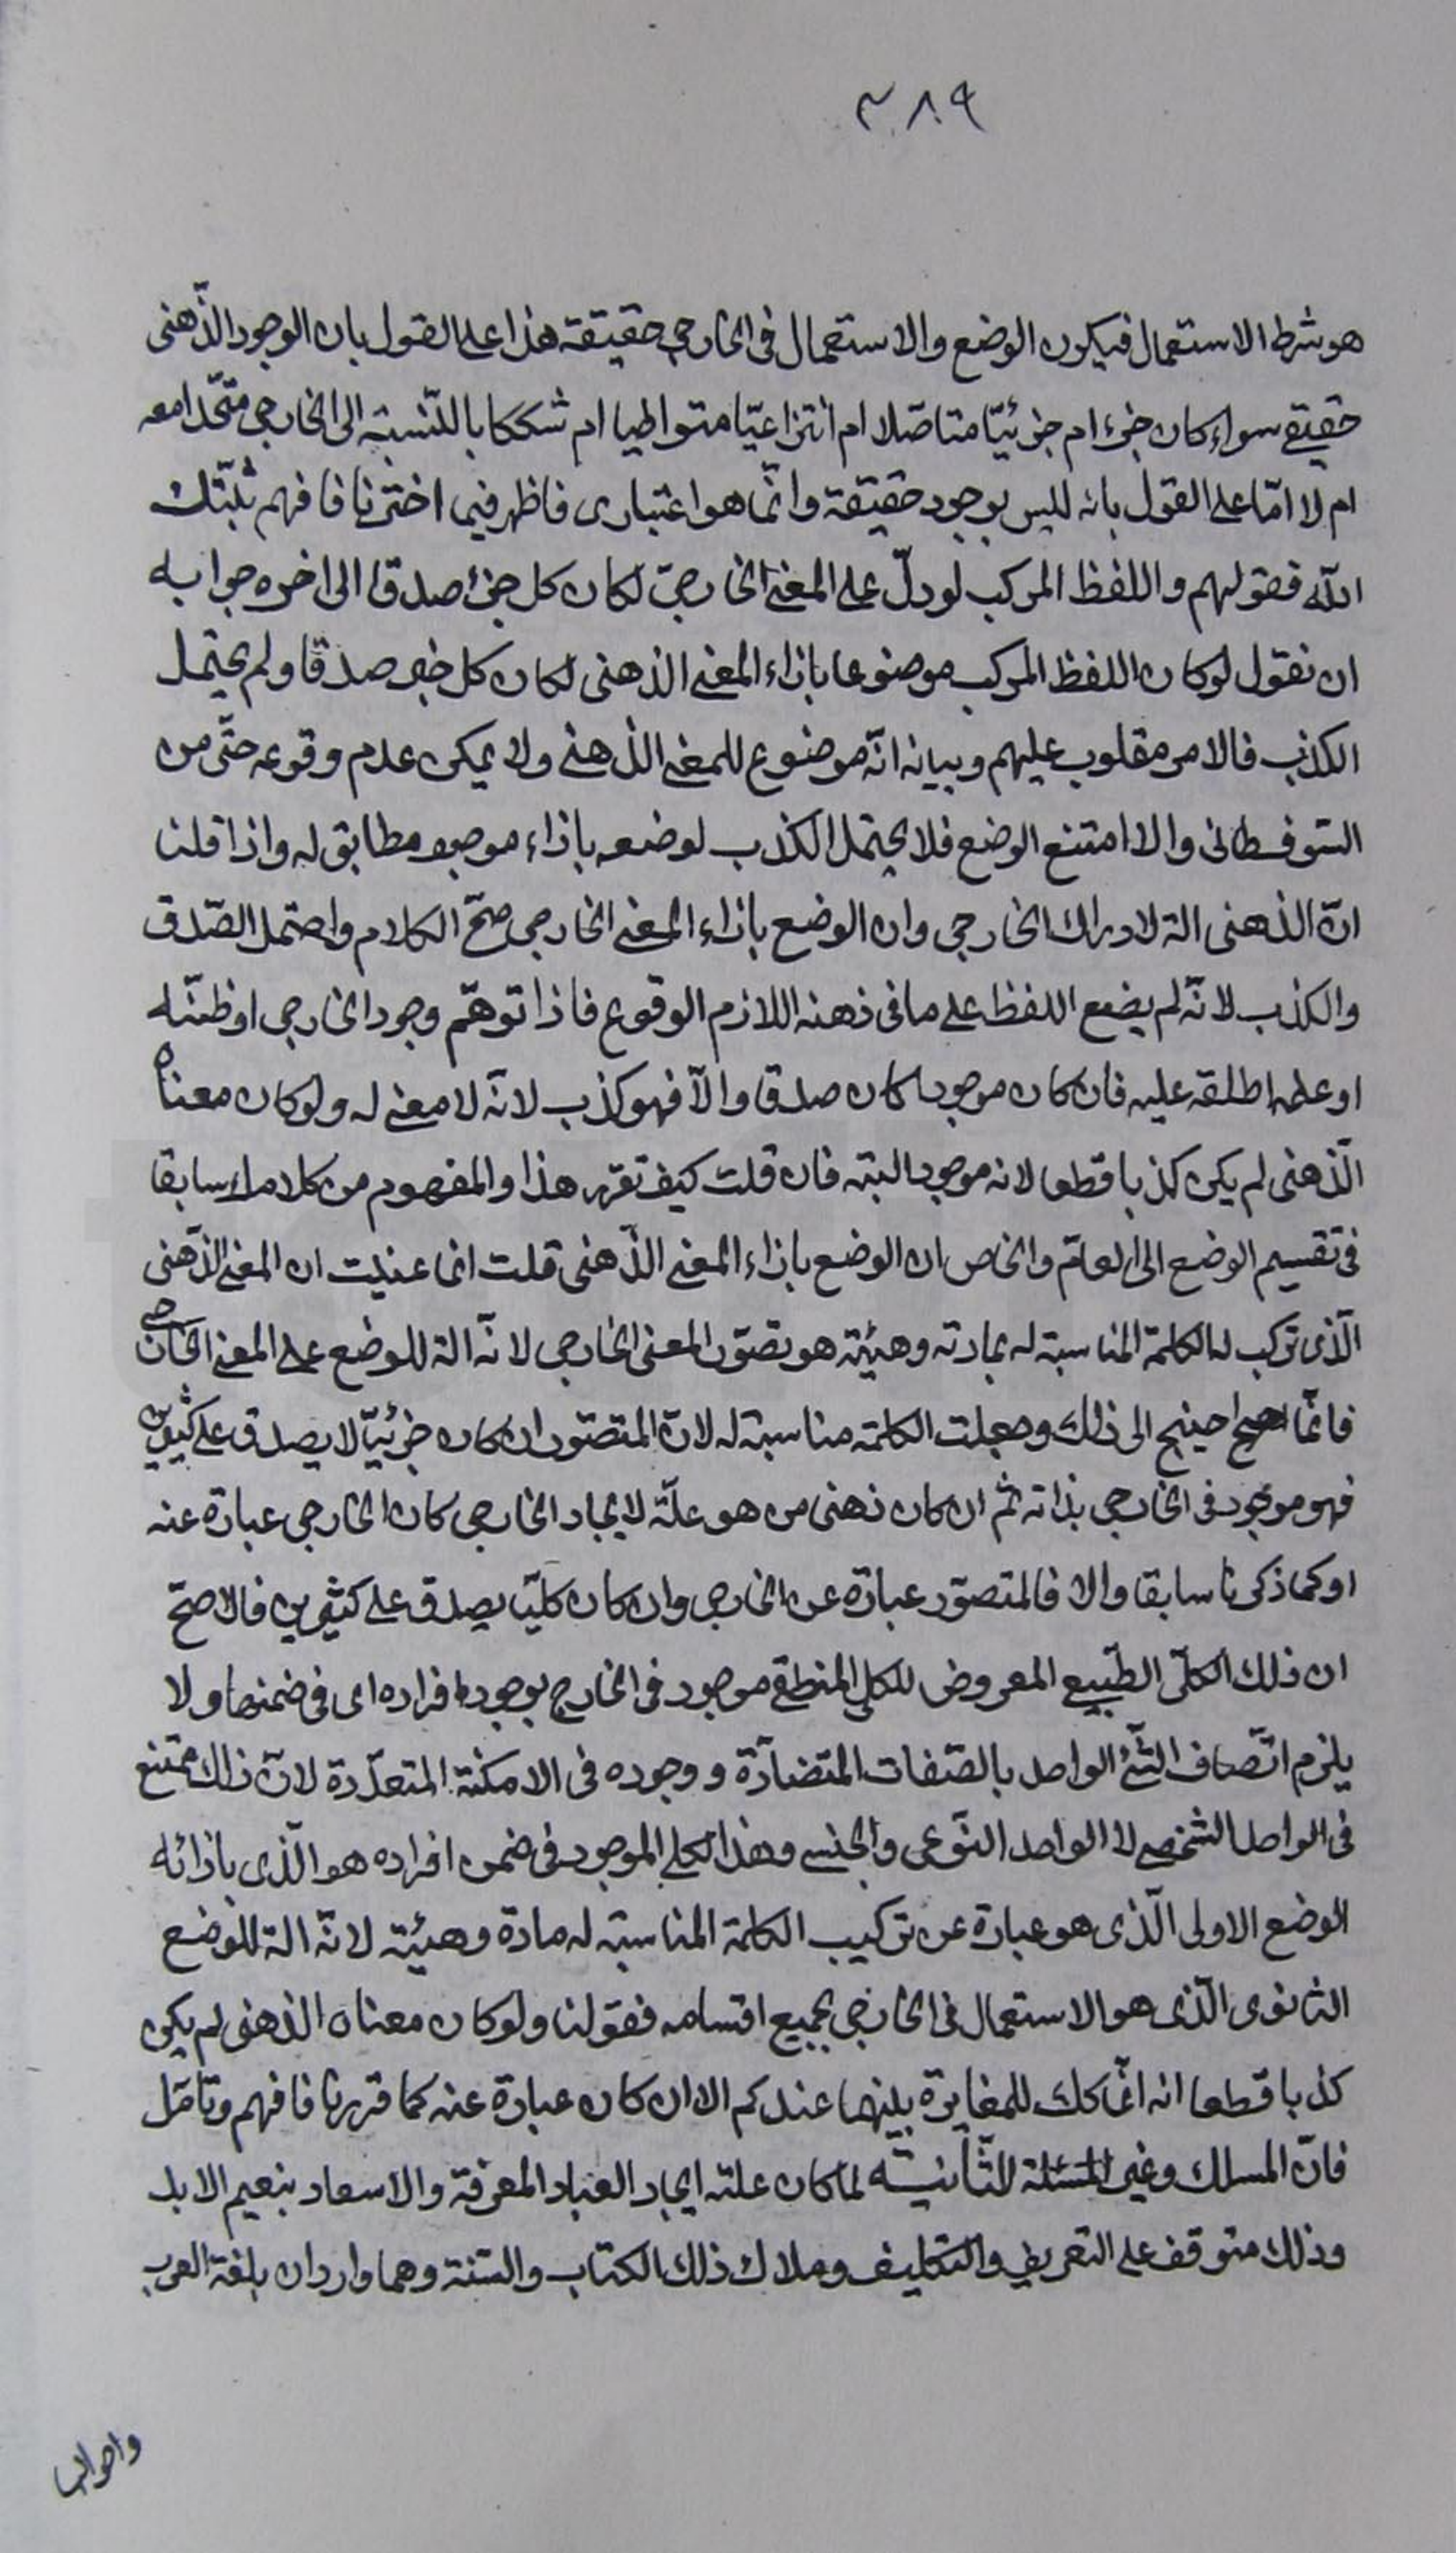 ٣٨٩
هو شرط الاستعمال فيكون الوضع والاستعمال فى الخارجى حقيقة هذا على القول بان الوجود الذّهنى
حقيقى سواء كان جزء ام جزئيّا متاصّلا ام انتزاعيّا متواطيا ام مشككا بالنّسبة الى الخارجى متّحدا معه
ام لا امّا على القول بانه ليس بوجود حقيقة وانّما هو اعتبارى فاظهر فيما اخترنا فافهم ثبّتك
اللّه فقولهم واللفظ المركب لو دلّ على المعنى الخارجىّ لكان كل جزء صدقا الى اخره جوابه
ان نقول لو كان اللفظ المركب موضوعا بازاء المعنى الذهنى لكان كل خبر صدقا ولم يحتمل
الكذب فالامر مقلوب عليهم وبيانه انّه موضوع للمعنى الذهنى ولا يمكن عدم وقوعه حتّى من
السّوفسطائى والا امتنع الوضع فلا يحتمل الكذب لوضعه بازاء موجود مطابق له واذا قلنا
انّ الذهنى الة لادراك الخارجى وان الوضع بازاء المعنى الخارجى صحّ الكلام واحتمل الصّدق
والكذب لانّه لم يضع اللفظ على ما فى ذهنه اللازم الوقوع فاذا توهّم وجود الخارجى او ظنّه
او علمه اطلقه عليه فان كان موجودا كان صدقا والّا فهو كذب لانّه لا معنى له ولو كان معناه
الّذهنى لم يكن كذبا قطعا لانه موجود البتة فان قلت كيف تقرر هذا والمفهوم من كلامك سابقا
فى تقسيم الوضع الى العامّ والخاص ان الوضع بازاء المعنى الذّهنى قلت انما عنيت ان المعنى الذّهنى
الّذى تركب له الكلمة المناسبة له بمادته وهيئته هو تصوّر المعنى الخارجى لانّه الة للوضع على المعنى الخارجى
فانّما احتيج الى ذلك وجعلت الكلمة مناسبة له لانّ المتصوّر ان كان جزئيّا لا يصدق على كثيرين
فهو موجود فى الخارجى بذاته ثم ان كان ذهنى من هو علّة لايجاد الخارجى كان الخارجى عبارة عنه
او كما ذكرنا سابقا والا فالمتصوّر عبارة عن الخارجى وان كان كليّا يصدق على كثيرين فالاصحّ
ان ذلك الكلّى الطّبيعى المعروض للكلى المنطقى موجود فى الخارج بوجود افراده اى فى ضمنها ولا
يلزم اتّصاف الشّئ الواحد بالصّفات المتضادّة ووجوده فى الامكنة المتعدّدة لانّ ذلك ممتنع
فى الواحد الشخصى لا الواحد النّوعى والجنسى وهذا الكلى الموجود فى ضمن افراده هو الّذى بازائه
الوضع الاولى الّذى هو عبارة عن تركيب الكلمة المناسبة له مادة وهيئة لانّه الة للوضع
الثانوى الّذى هو الاستعمال فى الخارجى بجميع اقسامه فقولنا ولو كان معناه الذهنى لم يكن
كذبا قطعا انه انّما كك للمغايرة بينهما عندكم الا ان كان عبارة عنه كما قررنا فافهم وتامّل
فانّ المسلك وعر المسئلة الثّانيّة لما كان علة ايجاد العباد المعرفة والاسعاد بنعيم الابد
وذلك متوقف على التعريف والتكليف وملاك ذلك الكتاب والسّنة وهما واردان بلغة العرب